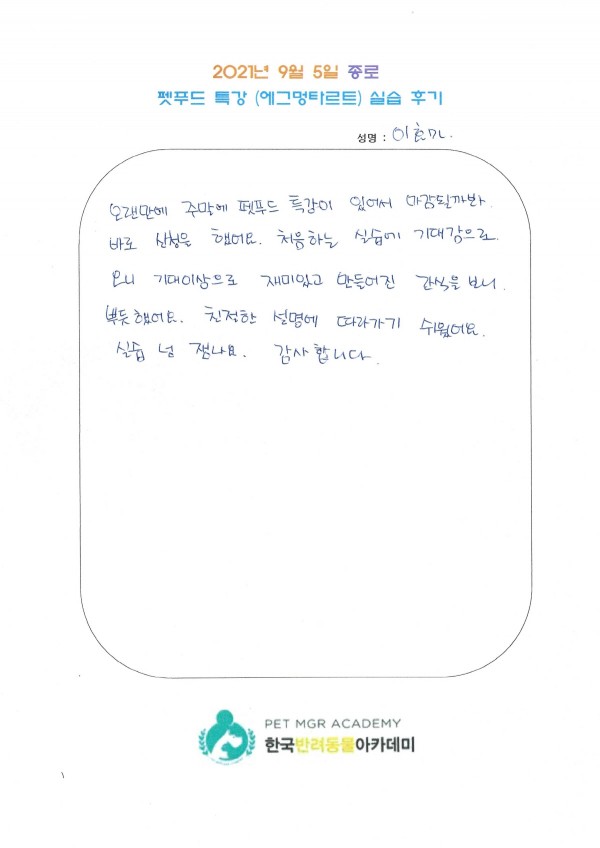 2021년 9월 5일 종로
펫푸드 특강 (에그멍타르트) 실습 후기
성명 : 이효
오랜만에 주말에 펫푸드 특강이 있어서 마감될까봐
바로 신청을 했어요. 처음하는 실습에 기대감으로
오니 기대이상으로 재미있고 만들어진 간식을 보니
뿌듯했어요. 친절한 설명에 따라가기 쉬웠어요.
실습 넘 잼나요. 감사합니다.
PET MGR ACADEMY
한국반려동물아카데미